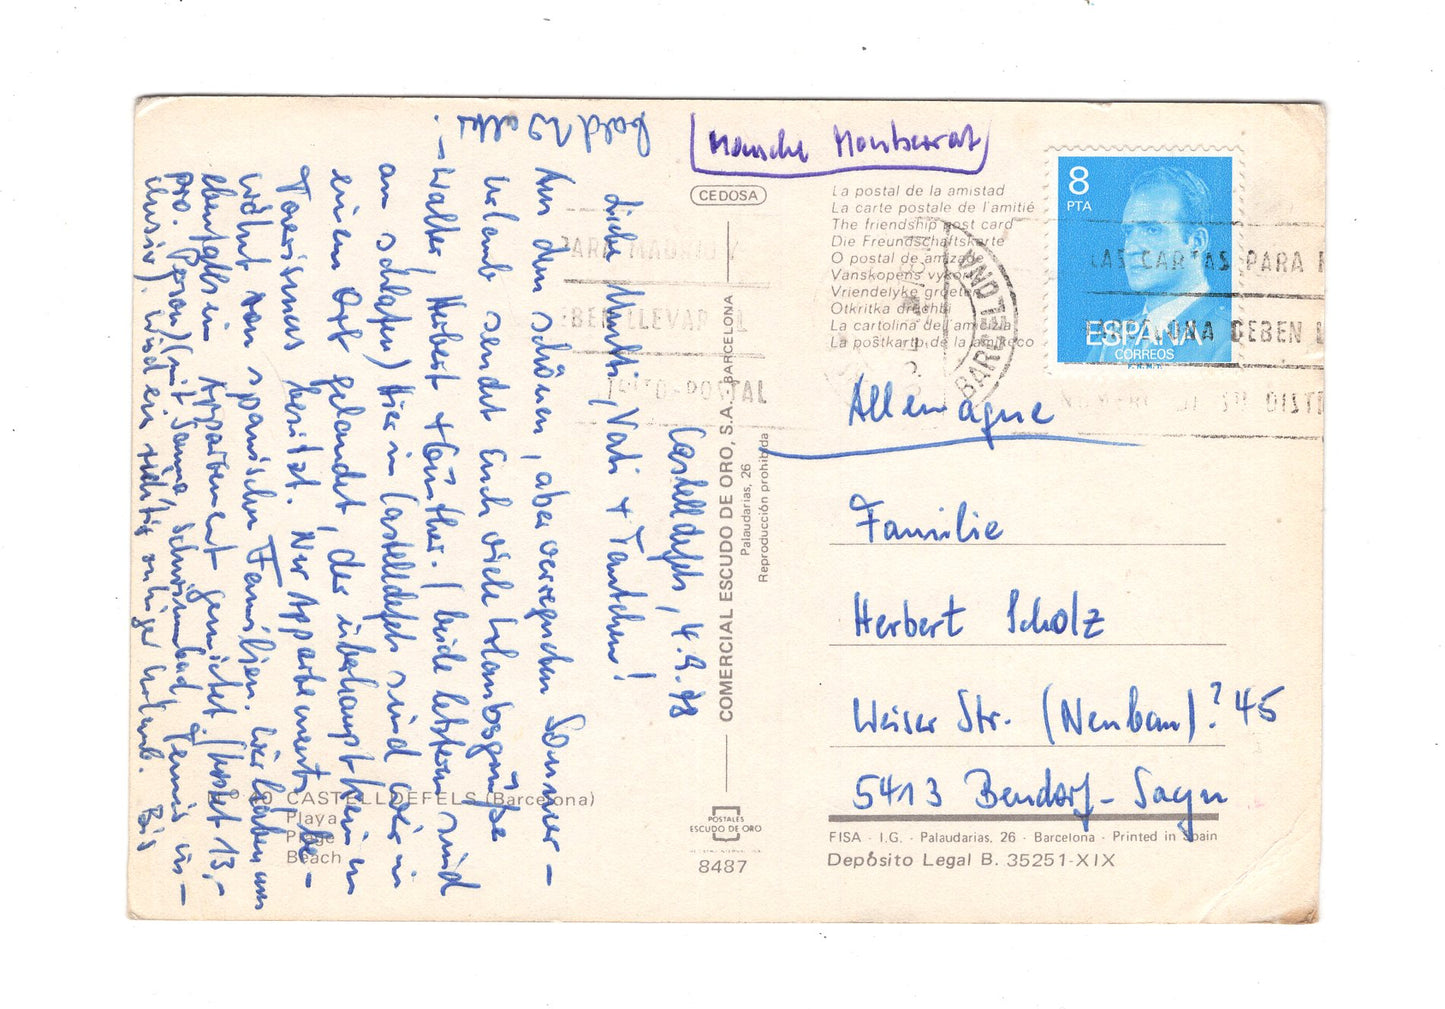 Castelldefels, 4.9.78
Liebe Mutti, Vati + Tantchen!
Aus dem schönen, aber verregneten Sommer-
urlaub sendet Euch viele Urlaubsgrüße
Walter, Herbert + Günther. (beide letzteren sind
am schlafen) Hier in Castelldefels sind wir in
einem Ort gelandet, der überhaupt keinen
Tourismus besitzt. Nur Appartements be-
wohnt von spanischen Familien. Wir haben uns
ebenfalls ein Appartement gemietet (kostet 13,-
pro. Person) (mit Sauna, Schwimmbad, Tennis in-
clusiv). Wird ein richtig ruhiger Urlaub. Bis
bald Walter!
(Manche Montserrat)
CEDOSA
La postal de la amistad
La carte postale de l'amitié
The friendship post card
Die Freundschaftskarte
O postal de amizade
Vanskopens vykort
Vriendelyke groeten
Otkritka drachbi
La cartolina dell'amicizia
La postkarto de la amikeco
8
PTA
ESPAÑA
CORREOS
F.N.M.T.
BARCELONA
LAS CARTAS PARA
UNA DEBEN
NUMERO DE SU DISTR
PARA MADRID Y
DEBEN LLEVAR EL
DISTRITO POSTAL
Allemagne
Familie
Herbert Scholz
Weiser Str. (Neubau)? 45
5413 Bendorf-Sayn
COMERCIAL ESCUDO DE ORO, S.A. BARCELONA
Palaudarias, 26
Reproducción prohibida
POSTALES
ESCUDO DE ORO
8487
N.º 40 CASTELLDEFELS (Barcelona)
Playa
Plage
Beach
FISA - I.G. - Palaudarias, 26 - Barcelona - Printed in Spain
Depósito Legal B. 35251-XIX